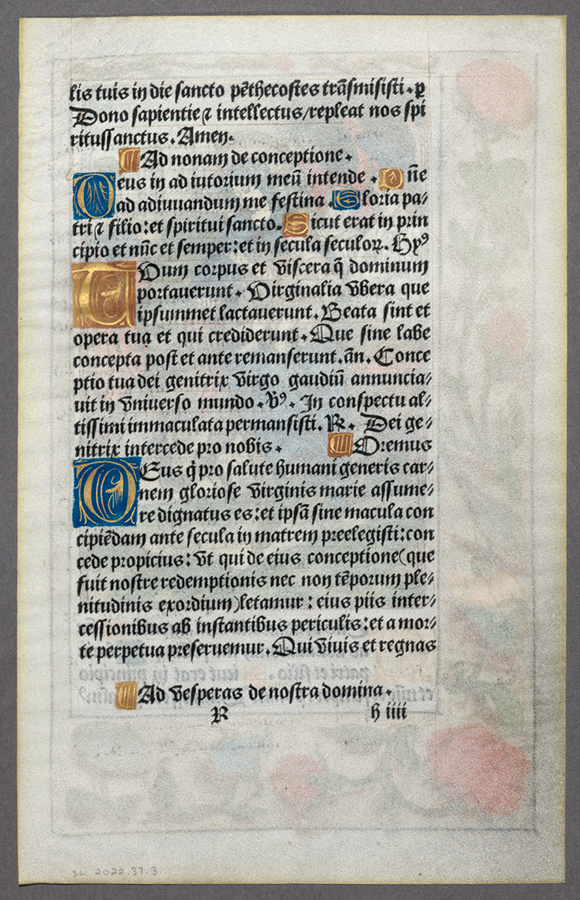 lis tuis in die sancto pēthecostes trāsmisisti. p
Dono sapientie ⁊ intellectus/repleat nos spi
ritussanctus. Amen.
Ad nonam de conceptione.
Deus in adiutorium meū intende. Dñe
ad adiuuandum me festina. Gloria pa-
tri ⁊ filio: et spiritui sancto. Sicut erat in prin
cipio et nūc et semper: et in secula seculoꝝ. Hyꝰ
Dum corpus et viscera q̄ dominum
portauerunt. Virginalia vbera que
ipsummet lactauerunt. Beata sint et
opera tua et qui crediderunt. Que sine labe
concepta post et ante remanserunt. añ. Conce
ptio tua dei genitrix virgo gaudiū annuncia-
uit in vniuerso mundo. Vꝰ. In conspectu al-
tissimi immaculata permansisti. ℟. Dei ge-
nitrix intercede pro nobis. Oremus
DEus q̄ pro salute humani generis car-
nem gloriose virginis marie assume-
re dignatus es: et ipsā sine macula con
cipiēdam ante secula in matrem preelegisti: con
cede propicius: vt qui de eius conceptione(que
fuit nostre redemptionis nec non tēporum ple-
nitudinis exordium)letamur: eius piis inter-
cessionibus ab instantibus periculis: et a mor-
te perpetua preseruemur. Qui viuis et regnas
Ad vesperas de nostra domina.
R h iiii
SC 2022.37.3